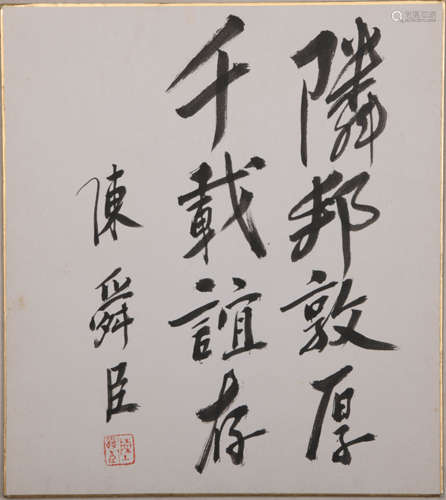 隣邦敦厚
千載誼存
陳舜臣